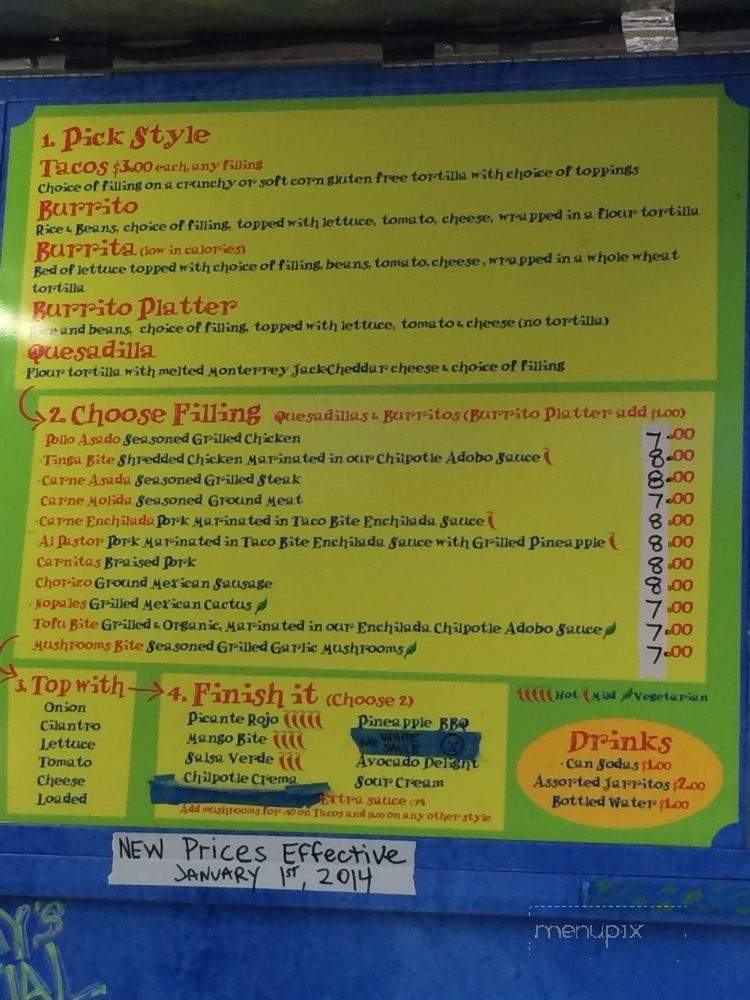 1. Pick Style
Tacos $3.00 each, any filling
Choice of filling on a crunchy or soft corn gluten free tortilla with choice of toppings
Burrito
Rice & Beans, choice of filling, topped with lettuce, tomato, cheese, wrapped in a flour tortilla
Burrita (low in calories)
Bed of lettuce topped with choice of filling, beans, tomato, cheese, wrapped in a whole wheat
tortilla
Burrito Platter
Rice and beans, choice of filling, topped with lettuce, tomato & cheese (no tortilla)
Quesadilla
Flour tortilla with melted Monterrey Jack-Cheddar cheese & choice of filling
2. Choose Filling Quesadillas & Burritos (Burrito Platter add $1.00)
Pollo Asado Seasoned Grilled Chicken 7.00
Tinga Bite Shredded Chicken Marinated in our Chilpotle Adobo Sauce 8.00
Carne Asada Seasoned Grilled Steak 8.00
Carne Molida Seasoned Ground Meat 7.00
Carne Enchilada Pork Marinated in Taco Bite Enchilada Sauce 8.00
Al Pastor Pork Marinated in Taco Bite Enchilada Sauce with Grilled Pineapple 8.00
Carnitas Braised Pork 8.00
Chorizo Ground Mexican Sausage 8.00
Nopales Grilled Mexican Cactus 7.00
Tofu Bite Grilled & Organic, Marinated in our Enchilada Chilpotle Adobo Sauce 7.00
Mushrooms Bite Seasoned Grilled Garlic Mushrooms 7.00
3. Top with
Onion
Cilantro
Lettuce
Tomato
Cheese
Loaded
4. Finish it (Choose 2)
Picante Rojo
Mango Bite
Salsa Verde
Chilpotle Crema
Pineapple BBQ
NO WHITE
SAUCE
Avocado Delight
Sour Cream
Extra sauce
Add mushrooms for on Tacos and on any other style
Hot Mild Vegetarian
Drinks
Can Sodas $1.00
Assorted Jarritos $2.00
Bottled Water $1.00
NEW Prices Effective
JANUARY 1ST, 2014
menupix